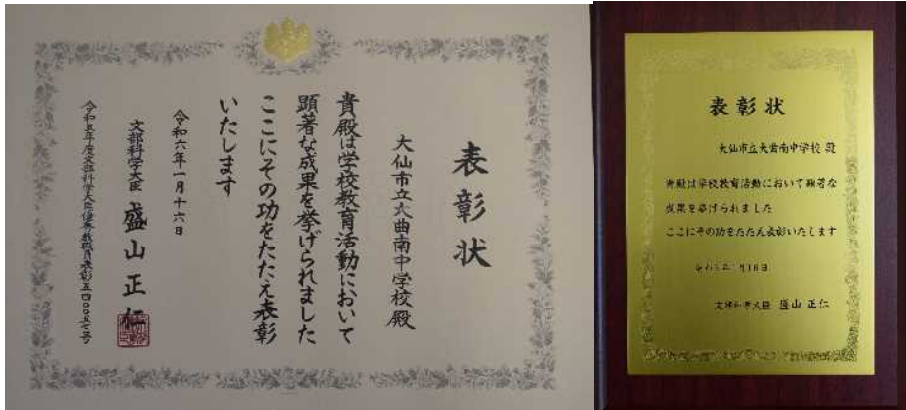 表彰状
大仙市立大曲南中学校殿
貴殿は学校教育活動において
顕著な成果を挙げられました
ここにその功をたたえ表彰
いたします
令和六年一月十六日
文部科学大臣 盛山正仁
令和五年度文部科学大臣優秀教職員表彰五四〇〇五七号
表彰状
大仙市立大曲南中学校 殿
貴殿は学校教育活動において顕著な
成果を挙げられました
ここにその功をたたえ表彰いたします
令和6年1月16日
文部科学大臣 盛山 正仁